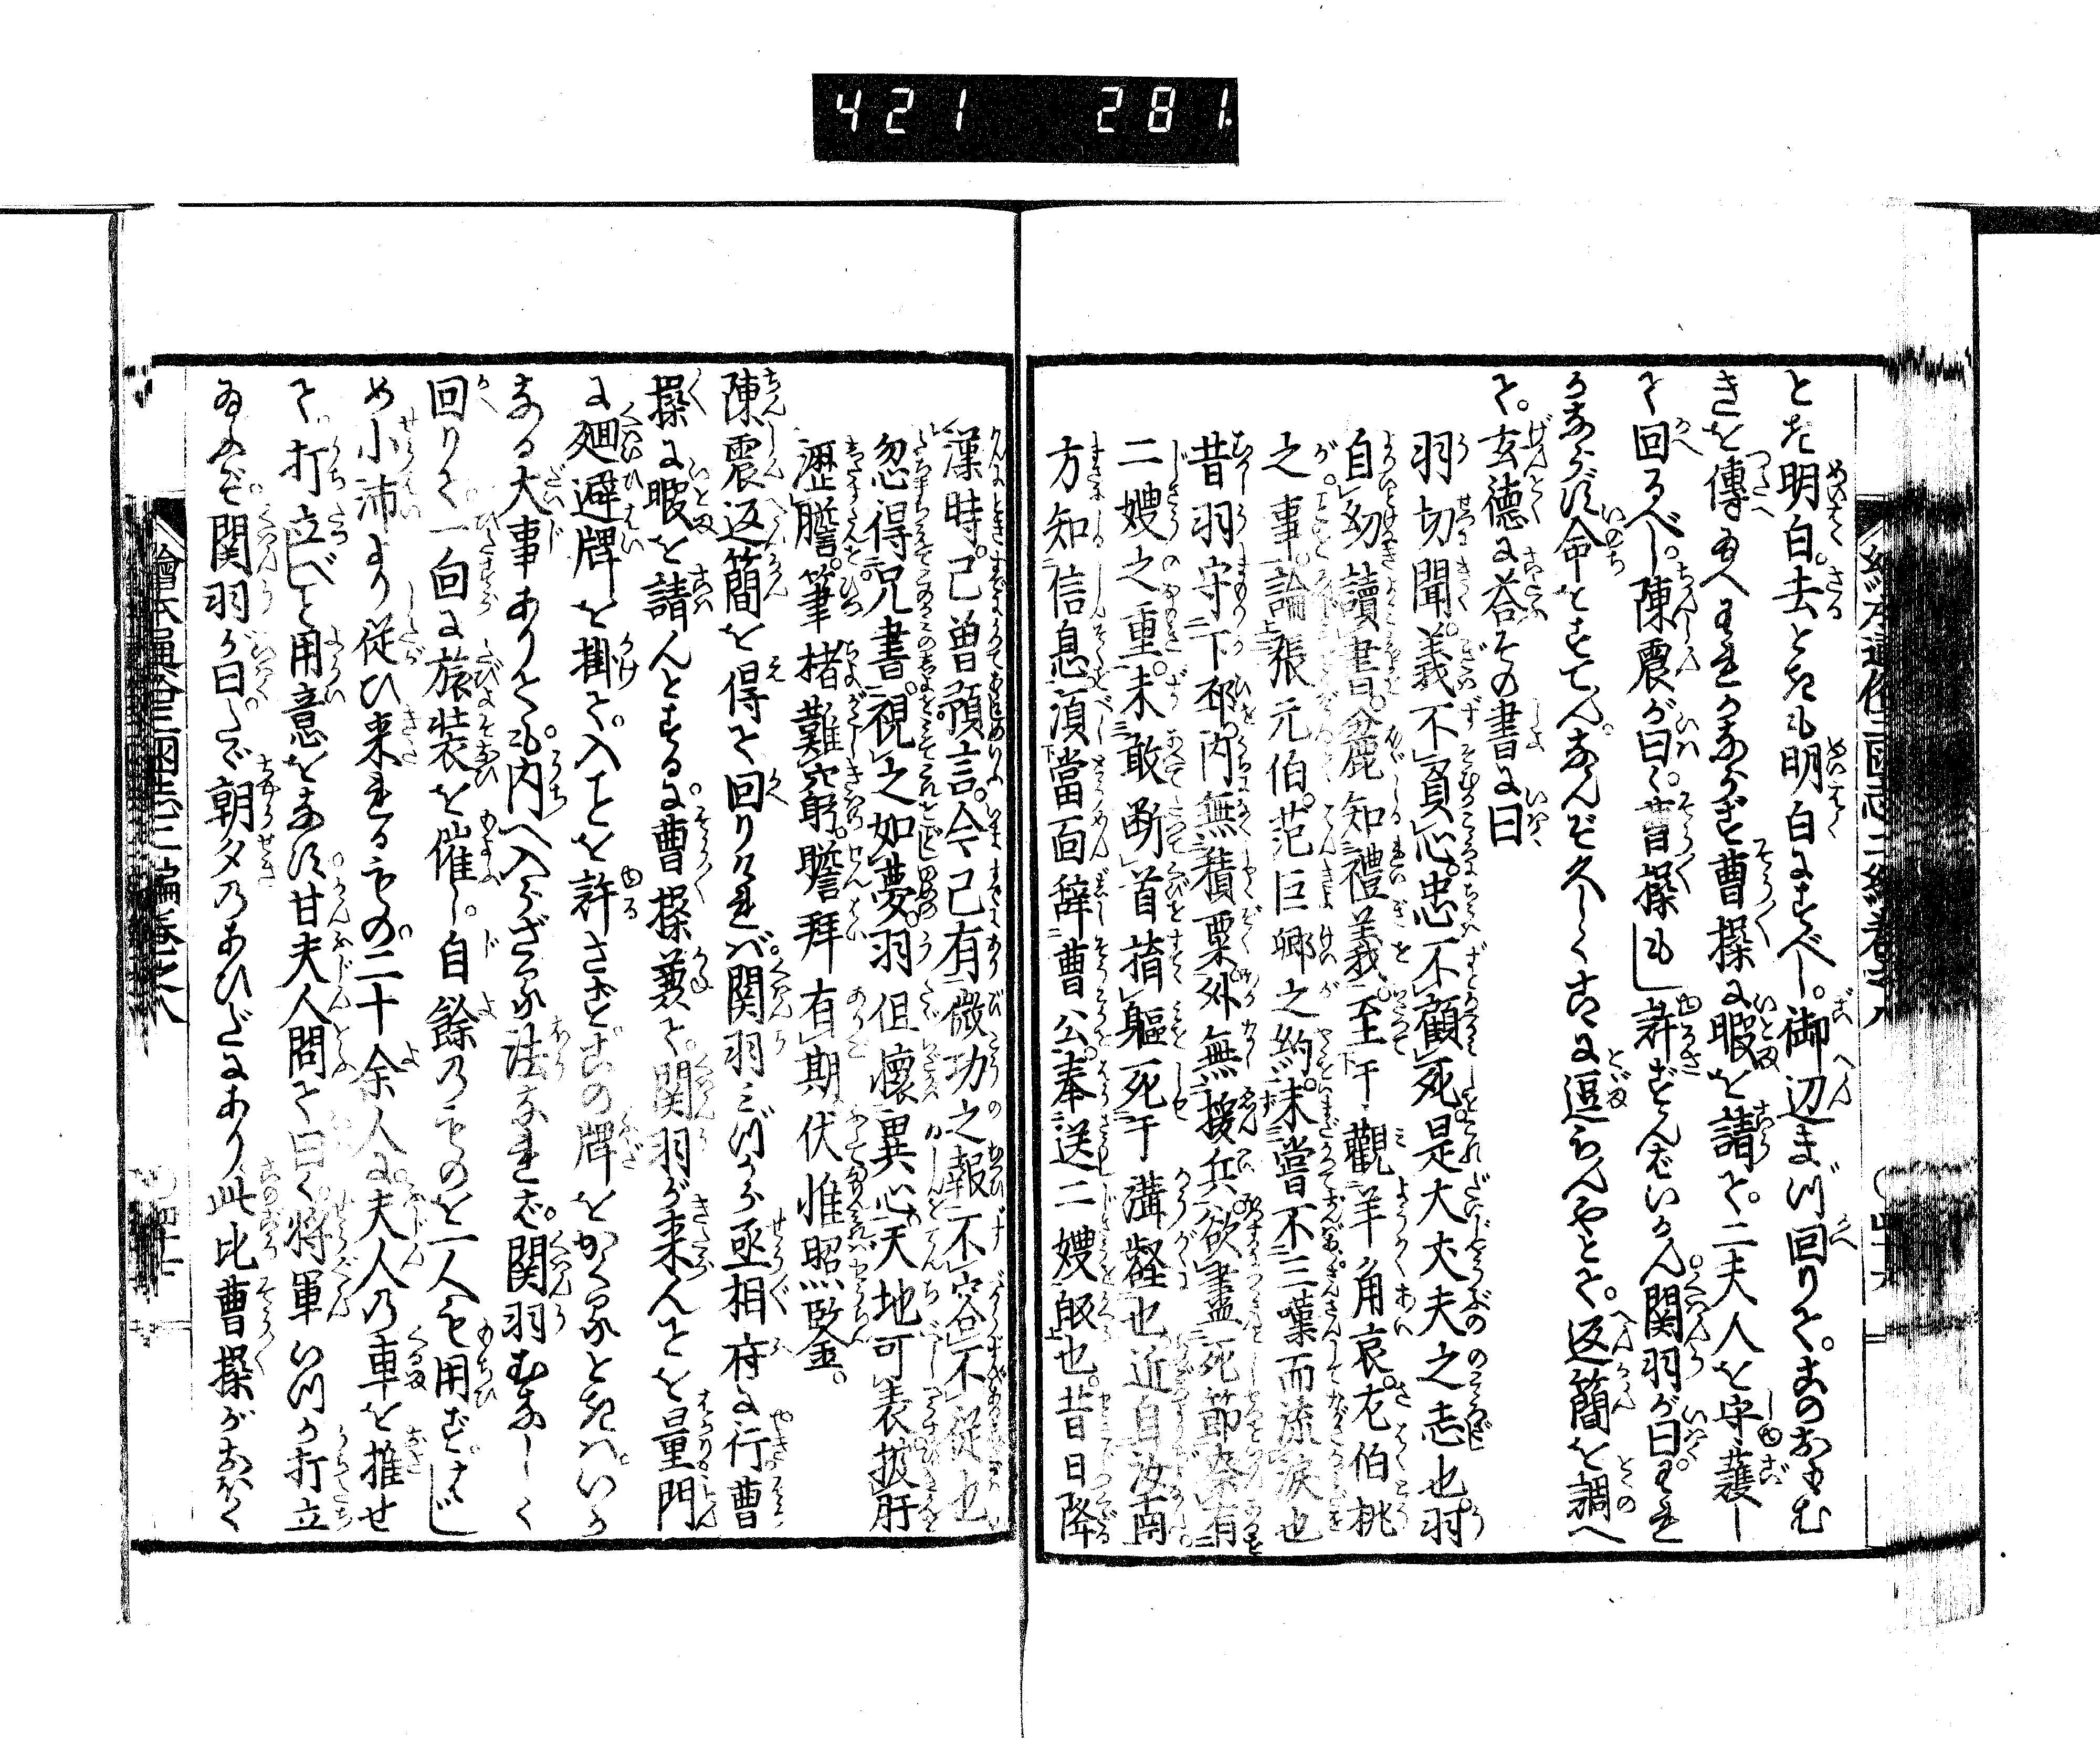 421 281
とた明白。去ときも明白にすべし。御辺まづ回りて。このおもむ
きを傳ゑへわれかならず曹操に暇を請て。二夫人を守護し
て回るべし。陳震が曰く。曹操もし許さずんばいかん。関羽が曰。われ
かならず命をすてん。なんぞ久しく古に逗らんやとて。返簡を調へ
て。玄徳に荅その書に曰
羽切聞。義不負心。忠不顧死。是大丈夫之志也。羽
自幼讀書。麁知禮義。至于觀羊角哀。左伯桃
之事。論張元伯。范巨卿之約。未嘗不三嘆而流涙也
昔羽守下邳。内無積粟。外無援兵。欲盡死節。奈有
二嫂之重。未敢断首捐軀。死于溝壑也。近自汝南
方知信息。須當面辞曹公。奉送二嫂皈也。昔日降
漢時。已曾預言。今已有微功之報。不容不従也
忽得兄書。視之如夢。羽但懐異心。天地可表。披肝
瀝膽。筆楮難窮。瞻拜有期。伏惟昭監。
陳震返簡を得て回りければ。関羽みづから丞相府に行曹
操に暇を請んとするに曹操兼て。関羽が来んことを量門
に廻避牌を掛て。入ことを許さずこの牌をかくるときは。いか
なる大事ありても。内へ入らざる法なれば。関羽むなしく
回りて。一向に旅装を催し。自餘のものを一人も用ずはじ
め小沛より従ひ来れるもの。二十余人に。夫人の車を推せ
て。打立べしと用意をなす。甘夫人問て曰く。将軍いつか打立
ゑふぞ。関羽が曰。たゞ朝夕のあひだにあり此比曹操がおほく
繪本通俗三國志三編巻之八
四十六
繪本通俗三國志三編巻之八
四十七